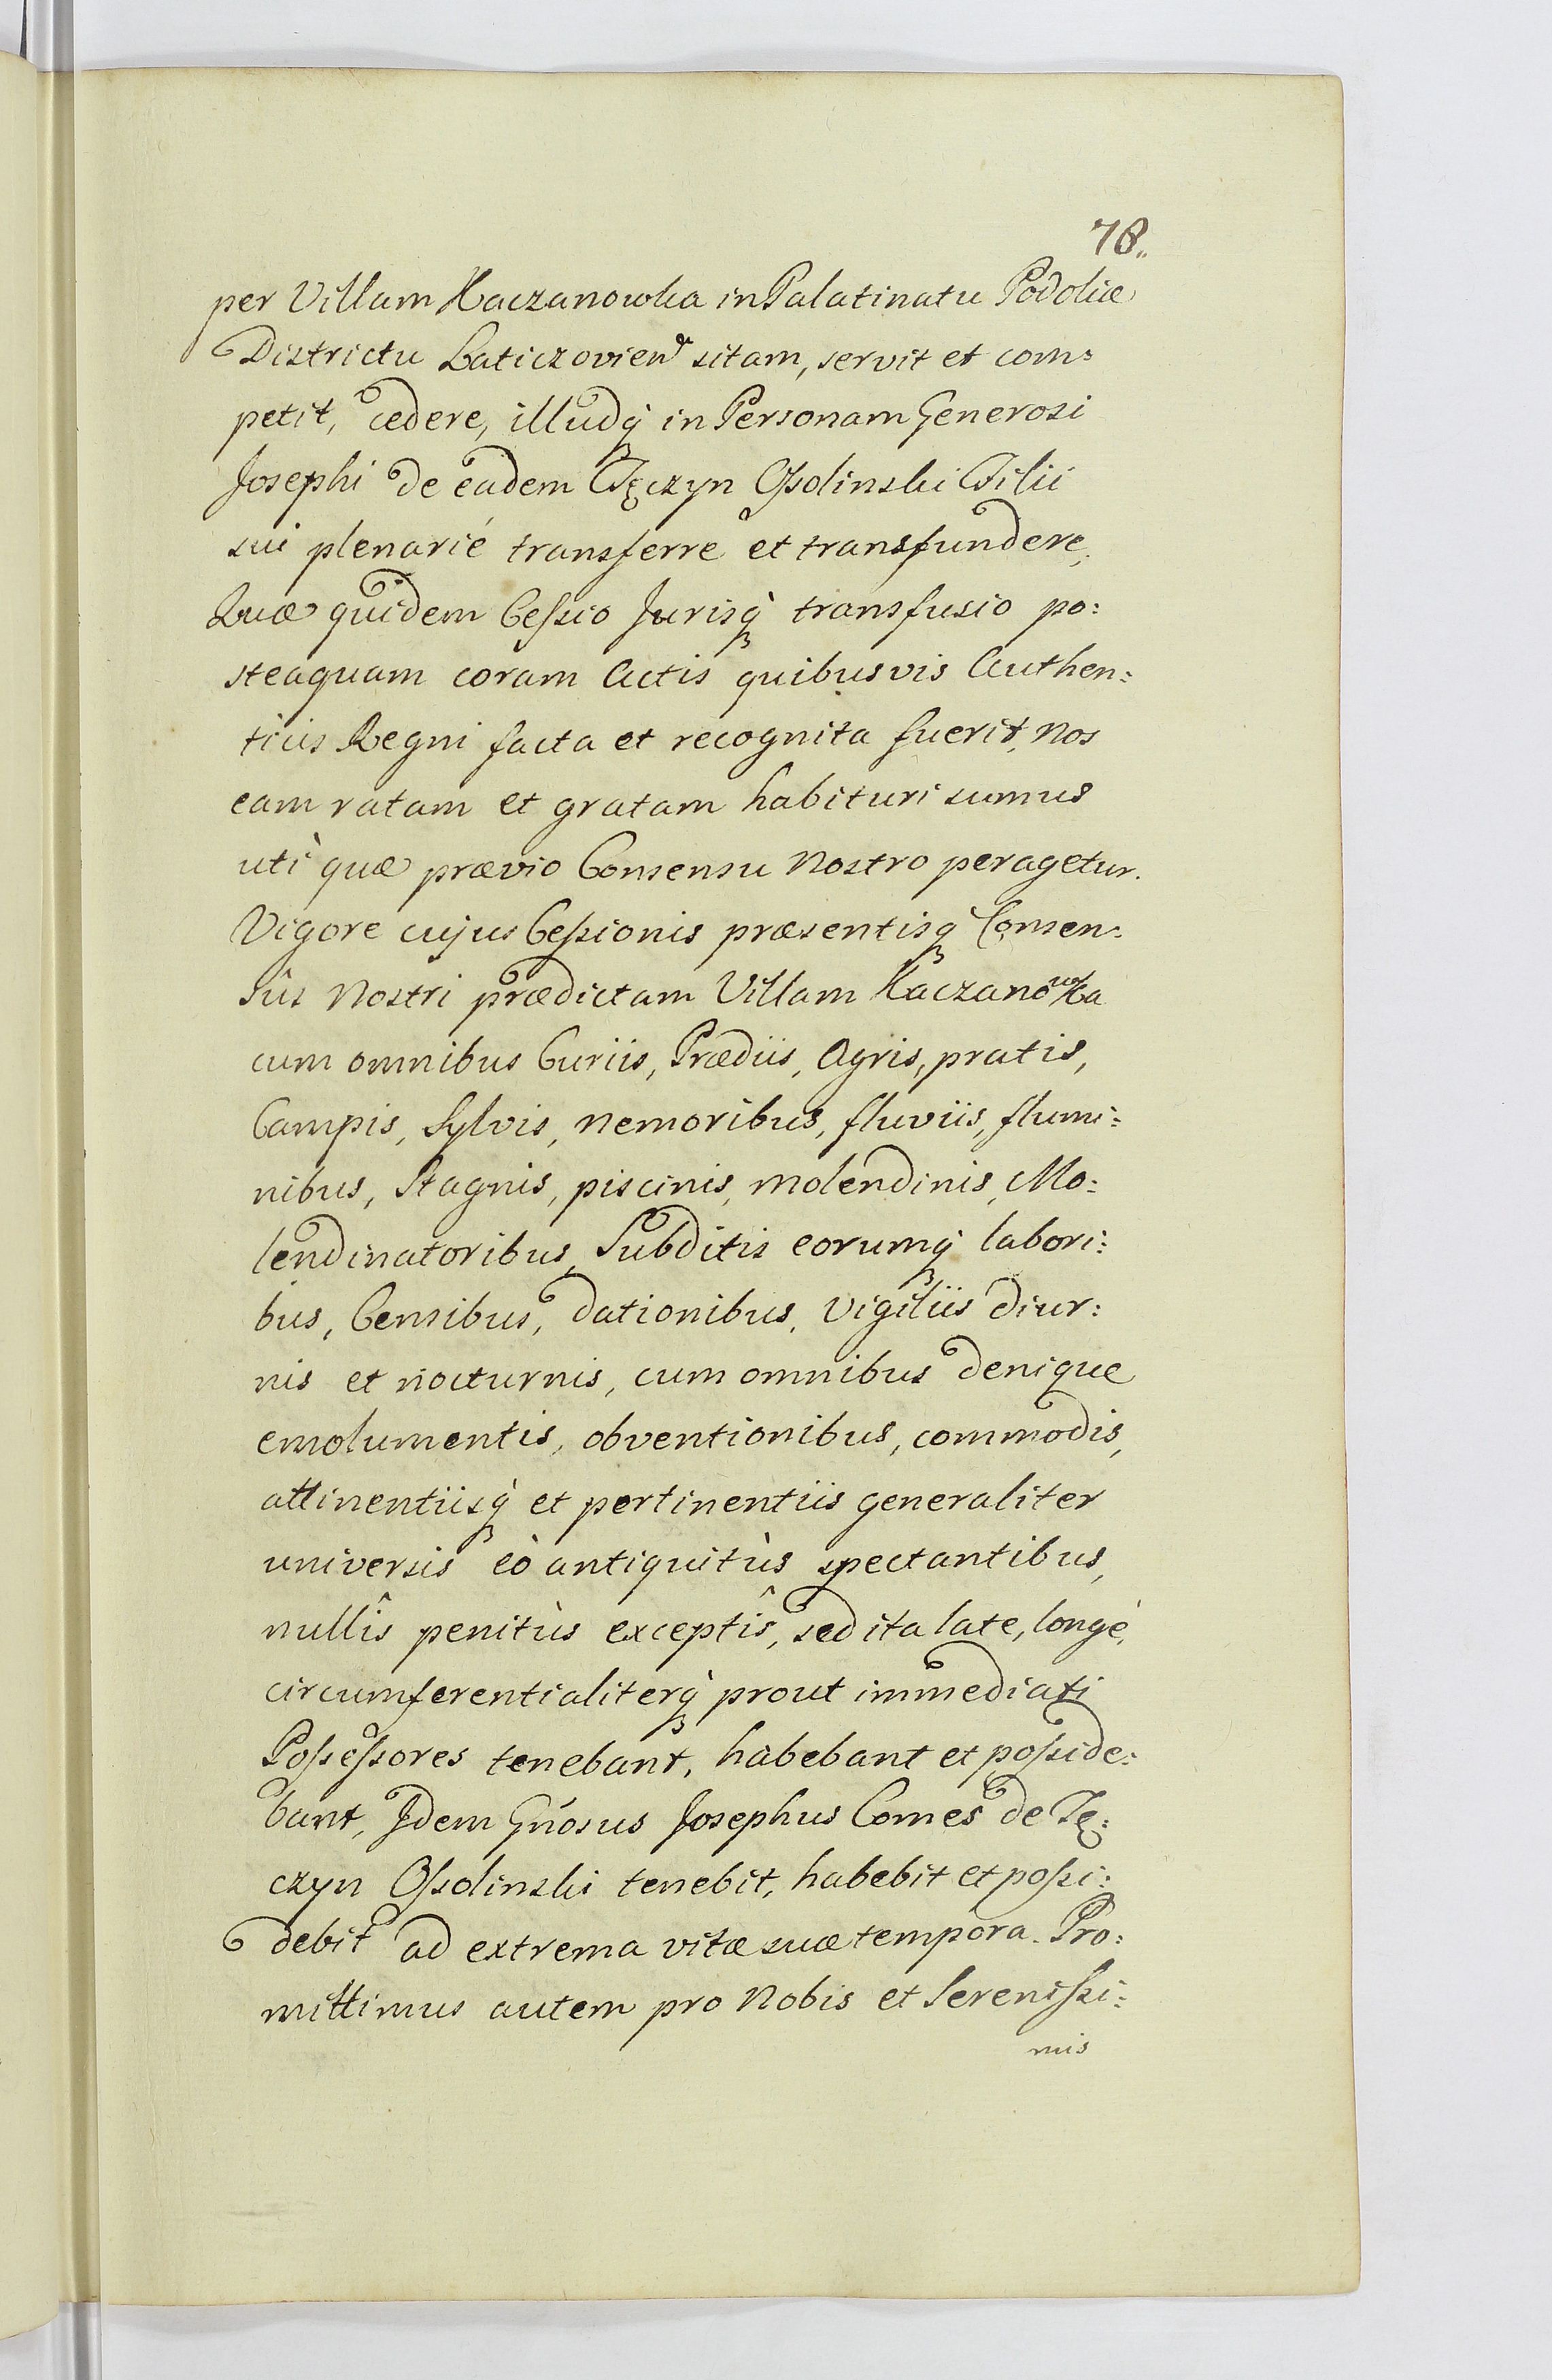 78.
per Villam Kaczanowka in Palatinatu Podoliæ
Districtu Laticzovien sitam, servit et com=
petit, cedere, illudq̀ in Personam Generosi
Josephi de eadem Tęczyn Ossolinski Filii
sui plenarié transferre et transfundere,
Quæ quidem Cessio Jurisq̀ transfusio po:
steaquam coram Actis quibusvis Authen:
ticis Regni facta et recognita fuerit, Nos
eam ratam et gratam habituri sumus
utì quæ prævio Consensu Nostro peragetur.
Vigore cujus Cessionis præsentisq̀ Consen:
sûs Nostri prædictam Villam Kaczanowka
cum omnibus Curiis, Prædiis, Agris, pratis,
Campis, Sylvis, Nemoribus, fluviis, flumi:
nibus, Stagnis, piscinis, Molendinis, Mo:
lendinatoribus, Subditis eorumq̀ labori:
bus, Censibus, dationibus, Vigiliis diur:
nis et nocturnis, cum omnibus denique
emolumentis, obventionibus, commodis,
attinentiisq̀ et pertinentiis generaliter
universis eò antiquitùs spectantibus,
nullîs penitùs exceptîs, sed ita late, longè,
circumferentialiterq̀ prout immediati
Possessores tenebant, habebant et posside:
bant, Idem Gnósus Josephus Comes de Tę:
czyn Ossolinski tenebit, habebit et possi:
debit ad extrema vitæ suæ tempora. Pro:
mittimus autem pro Nobis et Serenissi:
mis